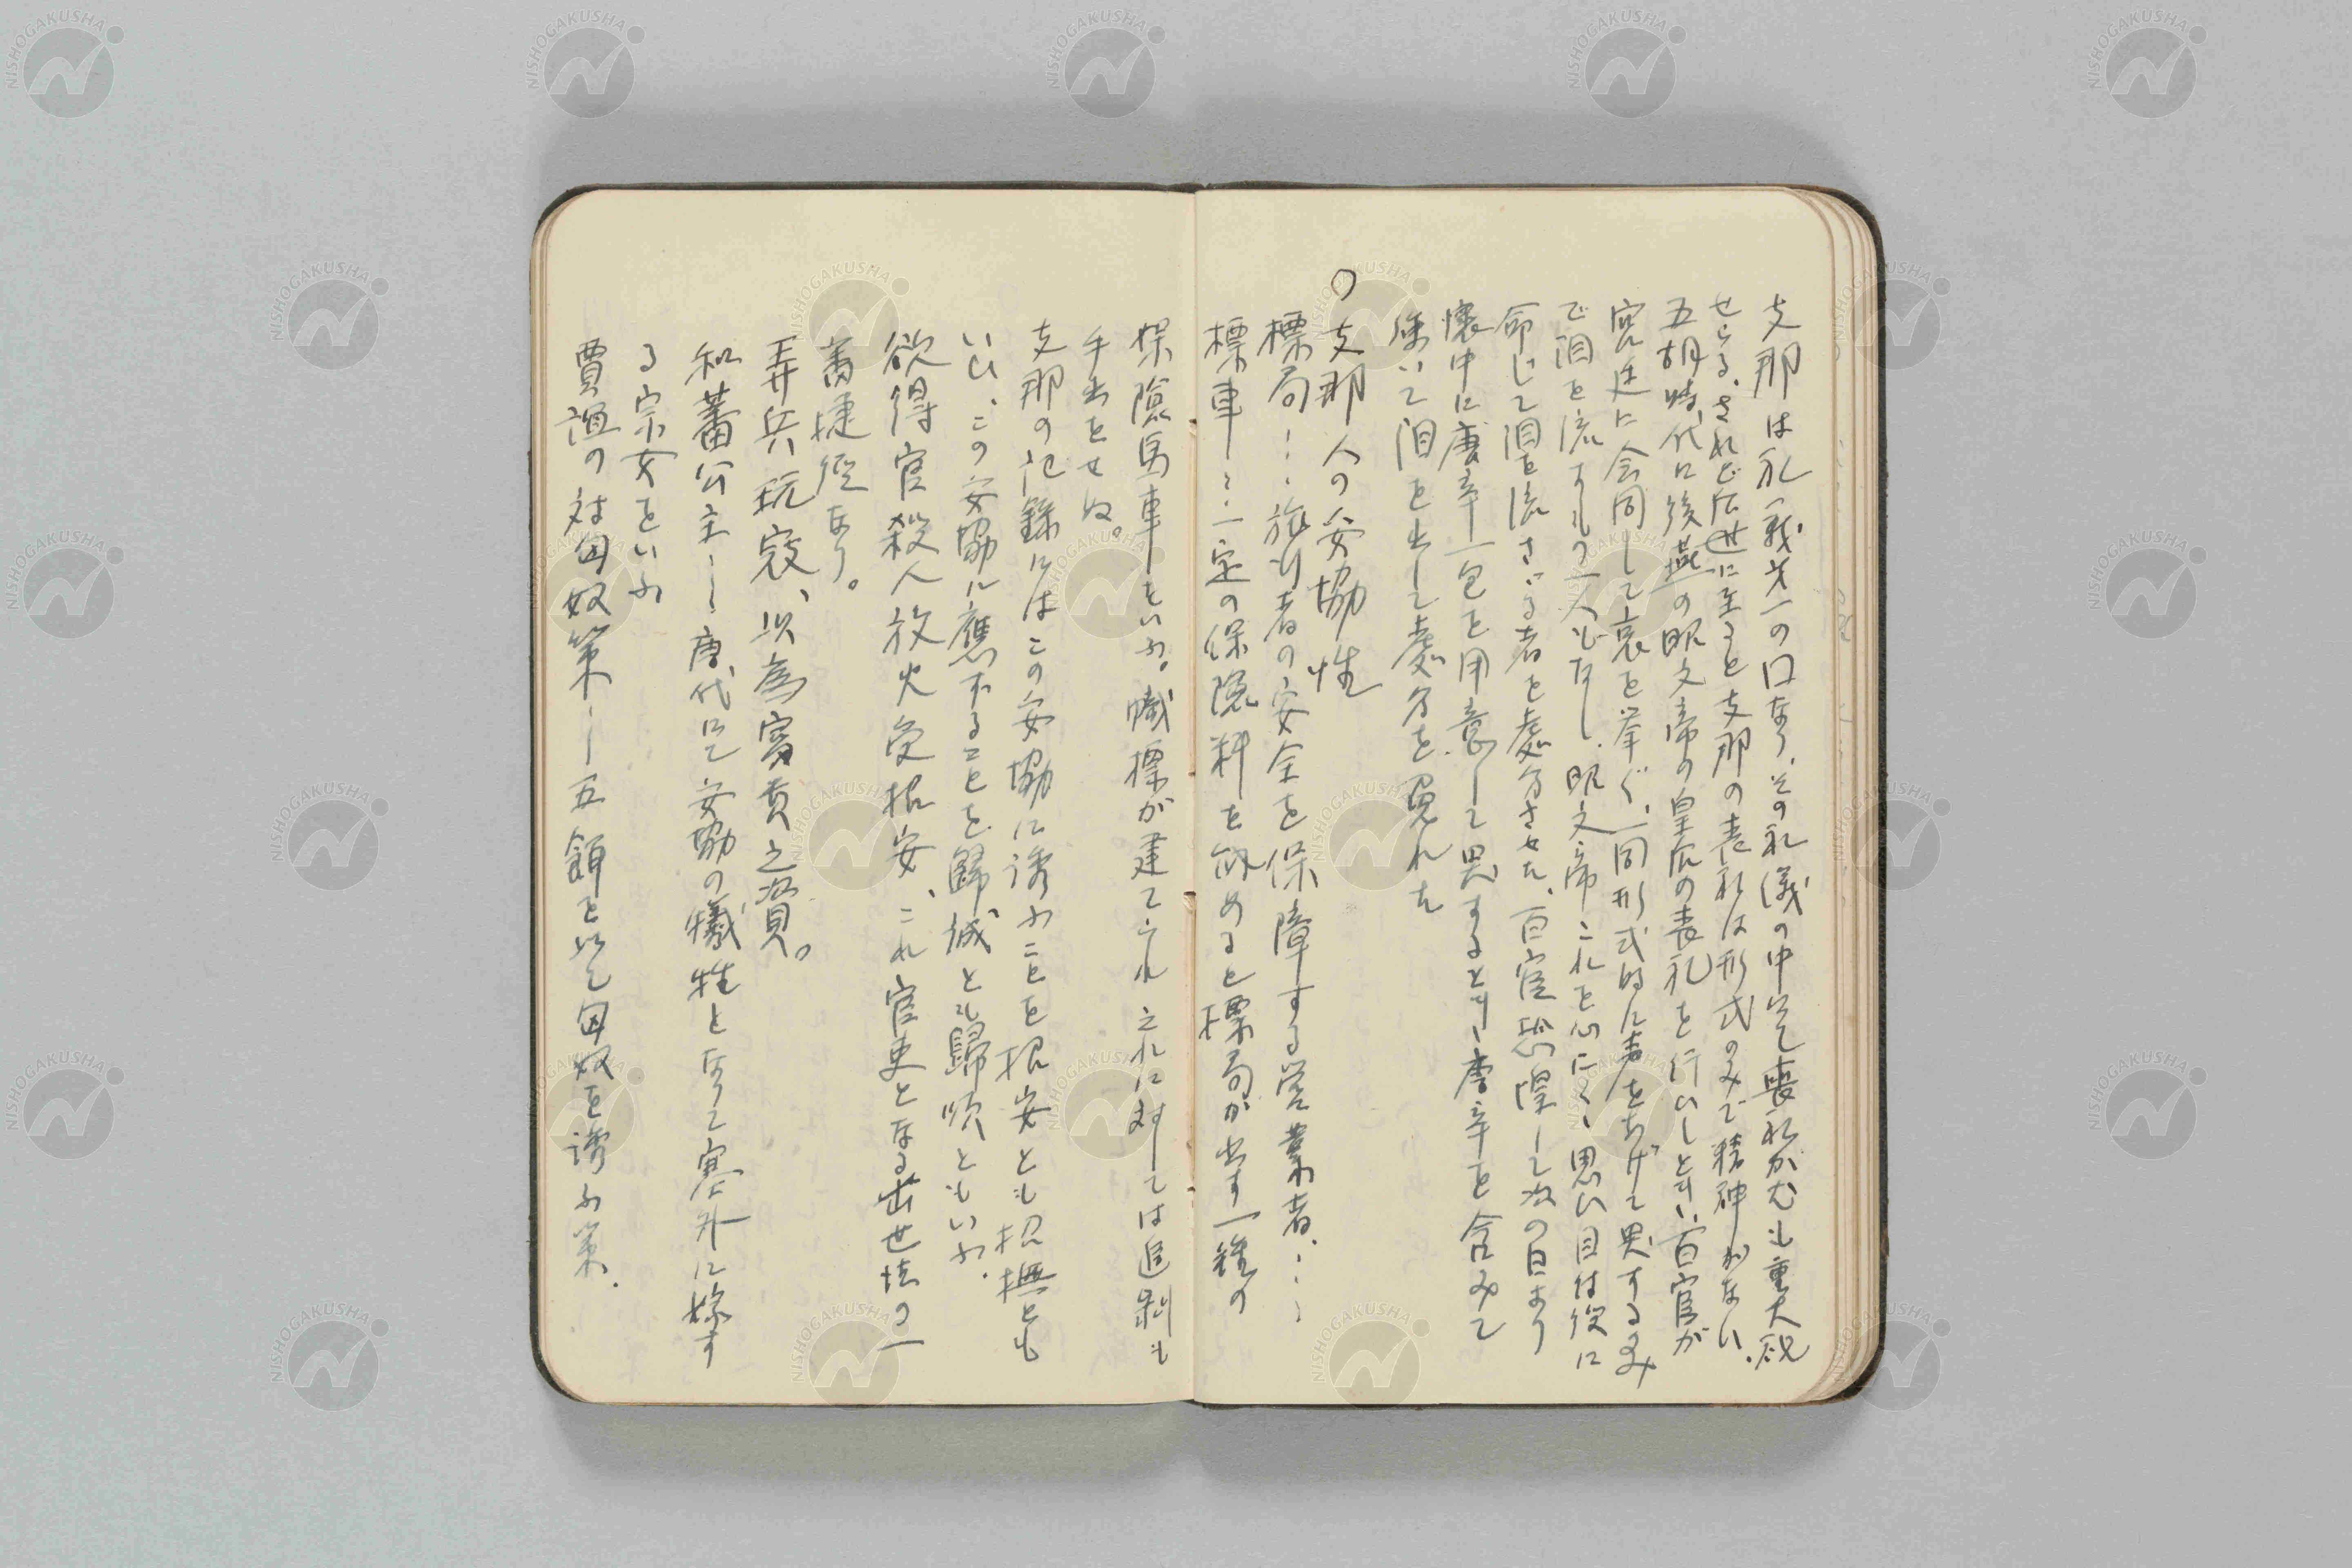 支那は礼儀第一の口なり、その礼儀の中にて喪礼が尤も重大視
せらる、されど后世に至ると支那の喪礼は形式のみで精神がない、
五胡時代に後燕の昭文帝の皇后の喪礼を行ひしとき百官が
宮廷に会同して哀を挙ぐ、一同形式的に声をあげて哭するのみ
で泪を流すもの一人もなし、昭文帝これを心にくく思ひ目付役に
命じて泪を流さゞる者を処分させた、百官恐惶して次の日より
懐中に唐辛一包を用意して哭するとき唐辛を含みて
強いて泪を出して処分を免れた
〇支那人の妥協性
標局……旅行者の安全を保障する営業者……
標車……一定の保険料を納めると標局が出す一種の
保険馬車をいふ。幟標が建てられ之れに対しては追剥も
手出をせぬ。
支那の記録にはこの妥協に誘ふことを招安とも招撫とも
いひ、この妥協に應ずることを歸誠とも歸順ともいふ。
欲得官殺人放火受招安、これ官吏となる出世法の一
捷徑なり。
弄兵玩寇、以為富貴之資。
和蕃公主——唐代にて妥協の犠牲となりて塞外に嫁す
る宗女をいふ
賈誼の対匈奴策——五餌を以て匈奴を誘ふ策.
NISHOGAKUSHA